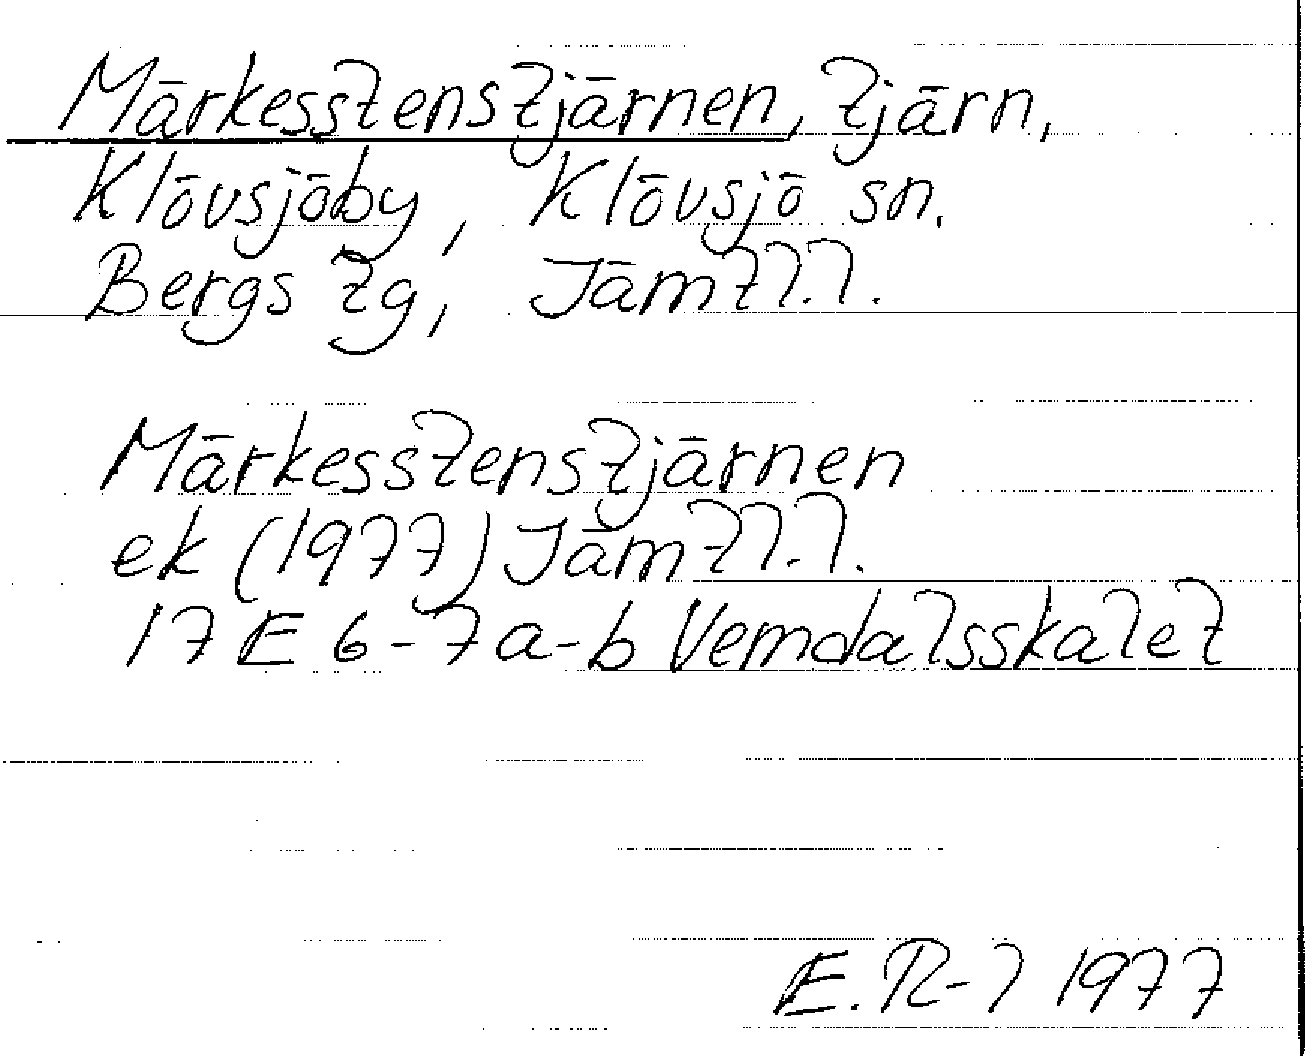 Märkesstenstjärnen, tjärn,
Klövsjöby, Klövsjö sn.
Bergs tg, Jämtl.l.
Märkesstenstjärnen
ek (1977) Jämtl.l.
17 E 6-7a-b Vemdalsskalet
E. R-l 1977